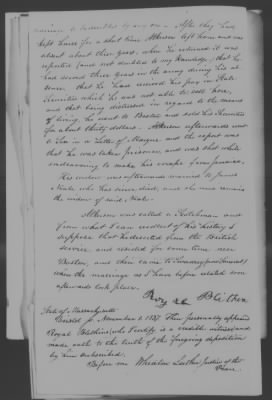 to by any one - After they had
kept house for a short time Atkerson left home and was
absent about three years, when he returned it was
reported (and not doubted to my knowledge) that he
had served three years in the army during his ab
sence. that he had received his pay in State
Securities which he was not able to sell here,
and that being distressed in regard to the means
of living, he went to Boston and sold his Securities
for about thirty dollars. Atkerson afterwards went
to Sea in a Letter of Marque, and the report was
that he was taken prisoner, and was shot while
endeavoring to make his escape from prison.
His widow was afterwards married to James
Hale who has since died, and she now remains
the widow of said Hale.
Atkerson was called a Scotchman and
from what I can recollect of his history I
suppose that he deserted from the British
service and resided for some time near
Boston, and then came to
when the marriage as I have before related soon
afterwards took place.
Royal
State of Massachusetts
Bristol ss November 8. 1837. Then personally appeared
Royal who I certify is a credible witness and
made oath to the truth of the foregoing deposition
by him subscribed.
Before me Wheaton Luther Justice of the
Peace.